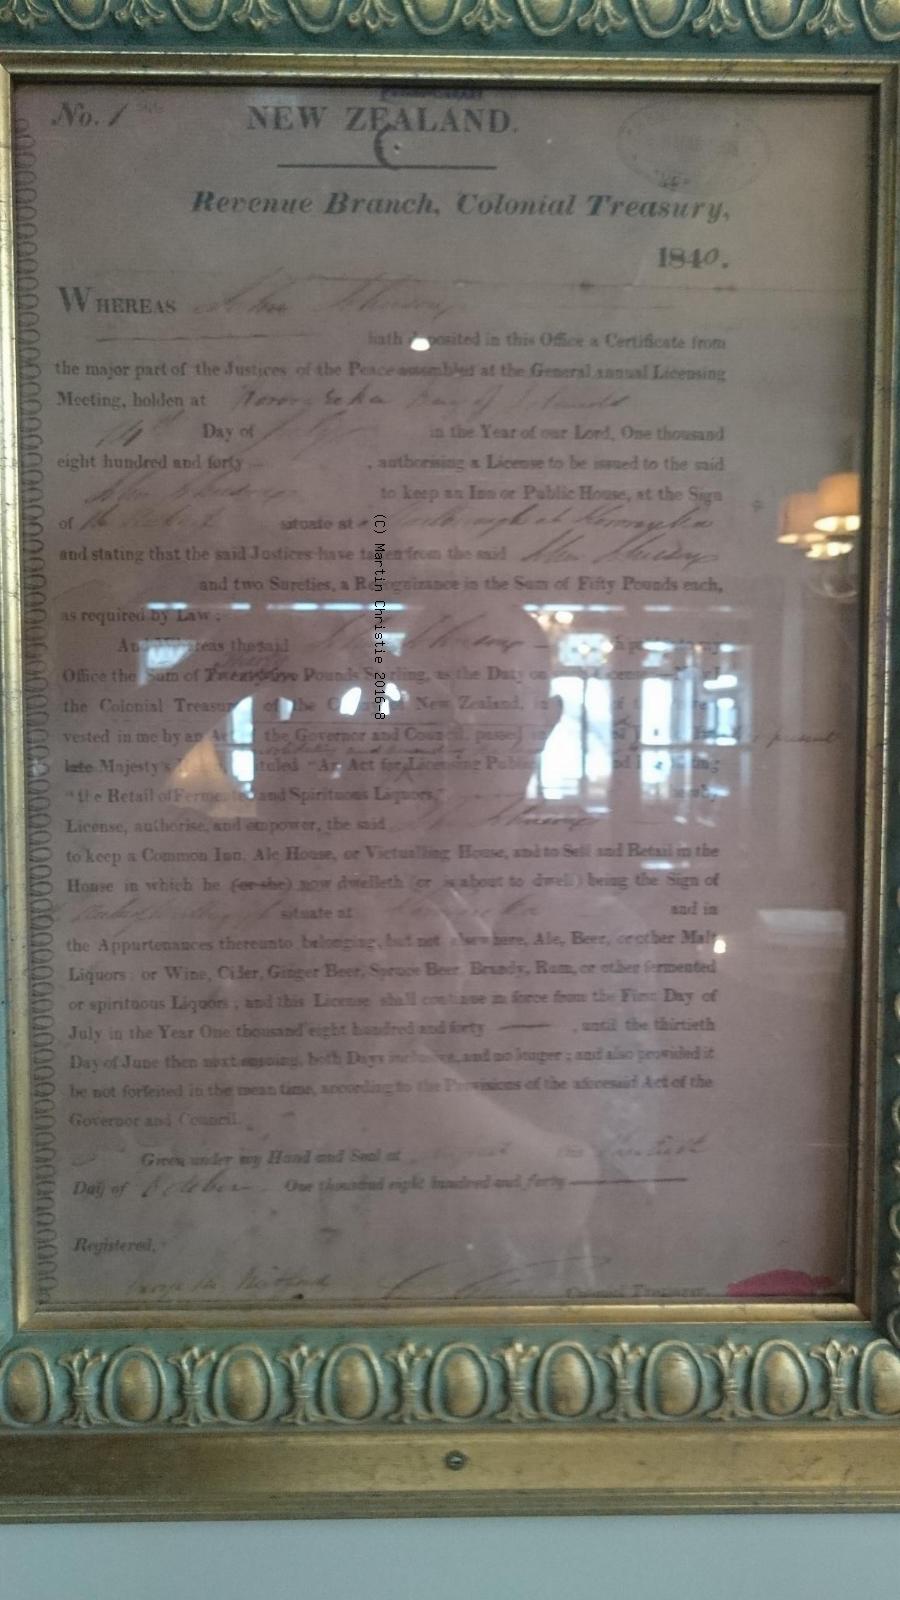 No. 1
NEW ZEALAND.
Revenue Branch, Colonial Treasury,
1840.
WHEREAS John Johnson
hath deposited in this Office a Certificate from
the major part of the Justices of the Peace assembled at the General annual Licensing
Meeting, holden at Bay of Islands
Day of in the Year of our Lord, One thousand
eight hundred and forty , authorising a License to be issued to the said
John Johnson to keep an Inn or Public House, at the Sign
of situate at Kororareka
and stating that the said Justices have taken from the said John Johnson
and two Sureties, a Recognizance in the Sum of Fifty Pounds each,
as required by Law :
And Whereas the said Johnson
Office the Sum of Pounds Sterling, as the Duty on
the Colonial Treasurer of the New Zealand, in
vested in me by an Act of the Governor and Council, passed in present
late Majesty's intituled "An Act for Licensing Public
"the Retail of Fermented and Spirituous Liquors,"
License, authorise, and empower, the said Johnson
to keep a Common Inn, Ale House, or Victualling House, and to Sell and Retail in the
House in which he (or she) now dwelleth (or is about to dwell) being the Sign of
situate at Kororareka and in
the Appurtenances thereunto belonging, but not elsewhere, Ale, Beer, or other Malt
Liquors ; or Wine, Cider, Ginger Beer, Spruce Beer, Brandy, Rum, or other fermented
or spirituous Liquors ; and this License shall continue in force from the First Day of
July in the Year One thousand eight hundred and forty , until the thirtieth
Day of June then next ensuing, both Days inclusive, and no longer ; and also provided it
be not forfeited in the mean time, according to the Provisions of the aforesaid Act of the
Governor and Council.
Given under my Hand and Seal at this
Day of October One thousand eight hundred and forty
Registered,
Colonial Treasurer.
(C) Martin Christie 2016-8